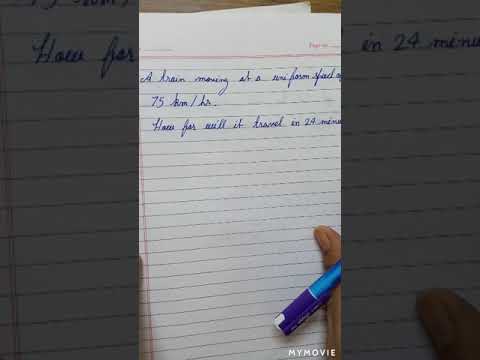 A train moving at a uniform speed of
75 km/hr.
How far will it travel in 24 minu
MYMOVIE